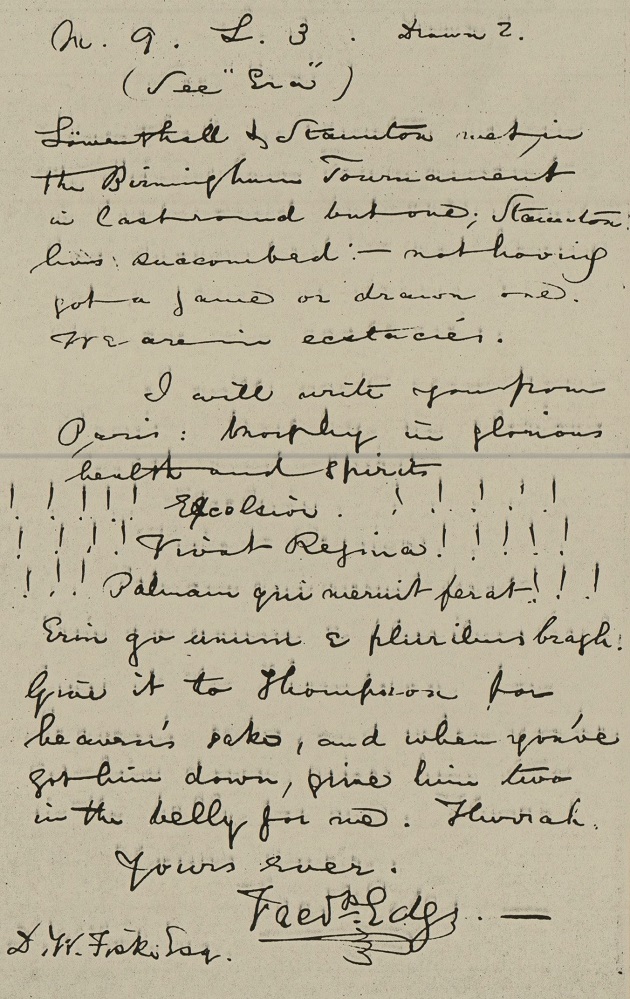 M. 9. L. 3. Drawn 2.
(See "Era")
Löwenthall & Staunton met, in
the Birmingham Tournament
in last round but one; Staunton
succombed :— not having
got a game or drawn one.
We are in ecstacies.
I will write you from
Paris: Morphy in glorious
health and spirits
! ! ! ! ! Excelsior. ! ! ! ! !
! ! ! ! Vivat Regina! ! ! ! !
! ! ! Palmam qui meruit ferat! ! !
Erin go unum e pluribus bragh!
Give it to Thompson for
heaven's sake, and when you've
got him down, give him two
in the belly for me. Hurrah.
Yours ever.
Fredk. Edge. —
D. W. Fiske Esq.